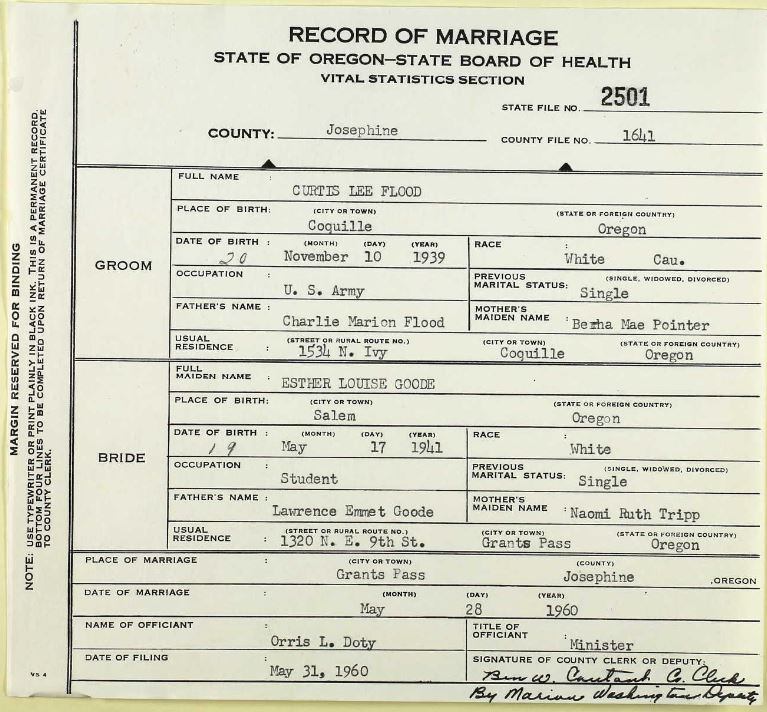 RECORD OF MARRIAGE
STATE OF OREGON—STATE BOARD OF HEALTH
VITAL STATISTICS SECTION
STATE FILE NO. 2501
COUNTY: Josephine COUNTY FILE NO. 1641
MARGIN RESERVED FOR BINDING
NOTE: USE TYPEWRITER OR PRINT PLAINLY IN BLACK INK. THIS IS A PERMANENT RECORD.
BOTTOM FOUR LINES TO BE COMPLETED UPON RETURN OF MARRIAGE CERTIFICATE
TO COUNTY CLERK.
VS 4
GROOM
FULL NAME :
CURTIS LEE FLOOD
PLACE OF BIRTH: (CITY OR TOWN) (STATE OR FOREIGN COUNTRY)
Coquille Oregon
DATE OF BIRTH : (MONTH) (DAY) (YEAR) RACE :
20 November 10 1939 White Cau.
OCCUPATION : PREVIOUS (SINGLE, WIDOWED, DIVORCED)
MARITAL STATUS:
U. S. Army Single
FATHER'S NAME : MOTHER'S
MAIDEN NAME :
Charlie Marion Flood Mae Pointer
USUAL (STREET OR RURAL ROUTE NO.) (CITY OR TOWN) (STATE OR FOREIGN COUNTRY)
RESIDENCE : 1534 N. Ivy Coquille Oregon
BRIDE
FULL
MAIDEN NAME :
ESTHER LOUISE GOODE
PLACE OF BIRTH: (CITY OR TOWN) (STATE OR FOREIGN COUNTRY)
Salem Oregon
DATE OF BIRTH : (MONTH) (DAY) (YEAR) RACE :
19 May 17 1941 White
OCCUPATION : PREVIOUS (SINGLE, WIDOWED, DIVORCED)
MARITAL STATUS:
Student Single
FATHER'S NAME : MOTHER'S
MAIDEN NAME :
Lawrence Emmet Goode Naomi Ruth Tripp
USUAL (STREET OR RURAL ROUTE NO.) (CITY OR TOWN) (STATE OR FOREIGN COUNTRY)
RESIDENCE : 1320 N. E. 9th St. Grants Pass Oregon
PLACE OF MARRIAGE : (CITY OR TOWN) (COUNTY)
Grants Pass Josephine ,OREGON
DATE OF MARRIAGE : (MONTH) (DAY) (YEAR)
May 28 1960
NAME OF OFFICIANT : TITLE OF
OFFICIANT :
Orris L. Doty Minister
DATE OF FILING : SIGNATURE OF COUNTY CLERK OR DEPUTY:
May 31, 1960 Ben W. Co. Clerk
By Marion Washington Deputy